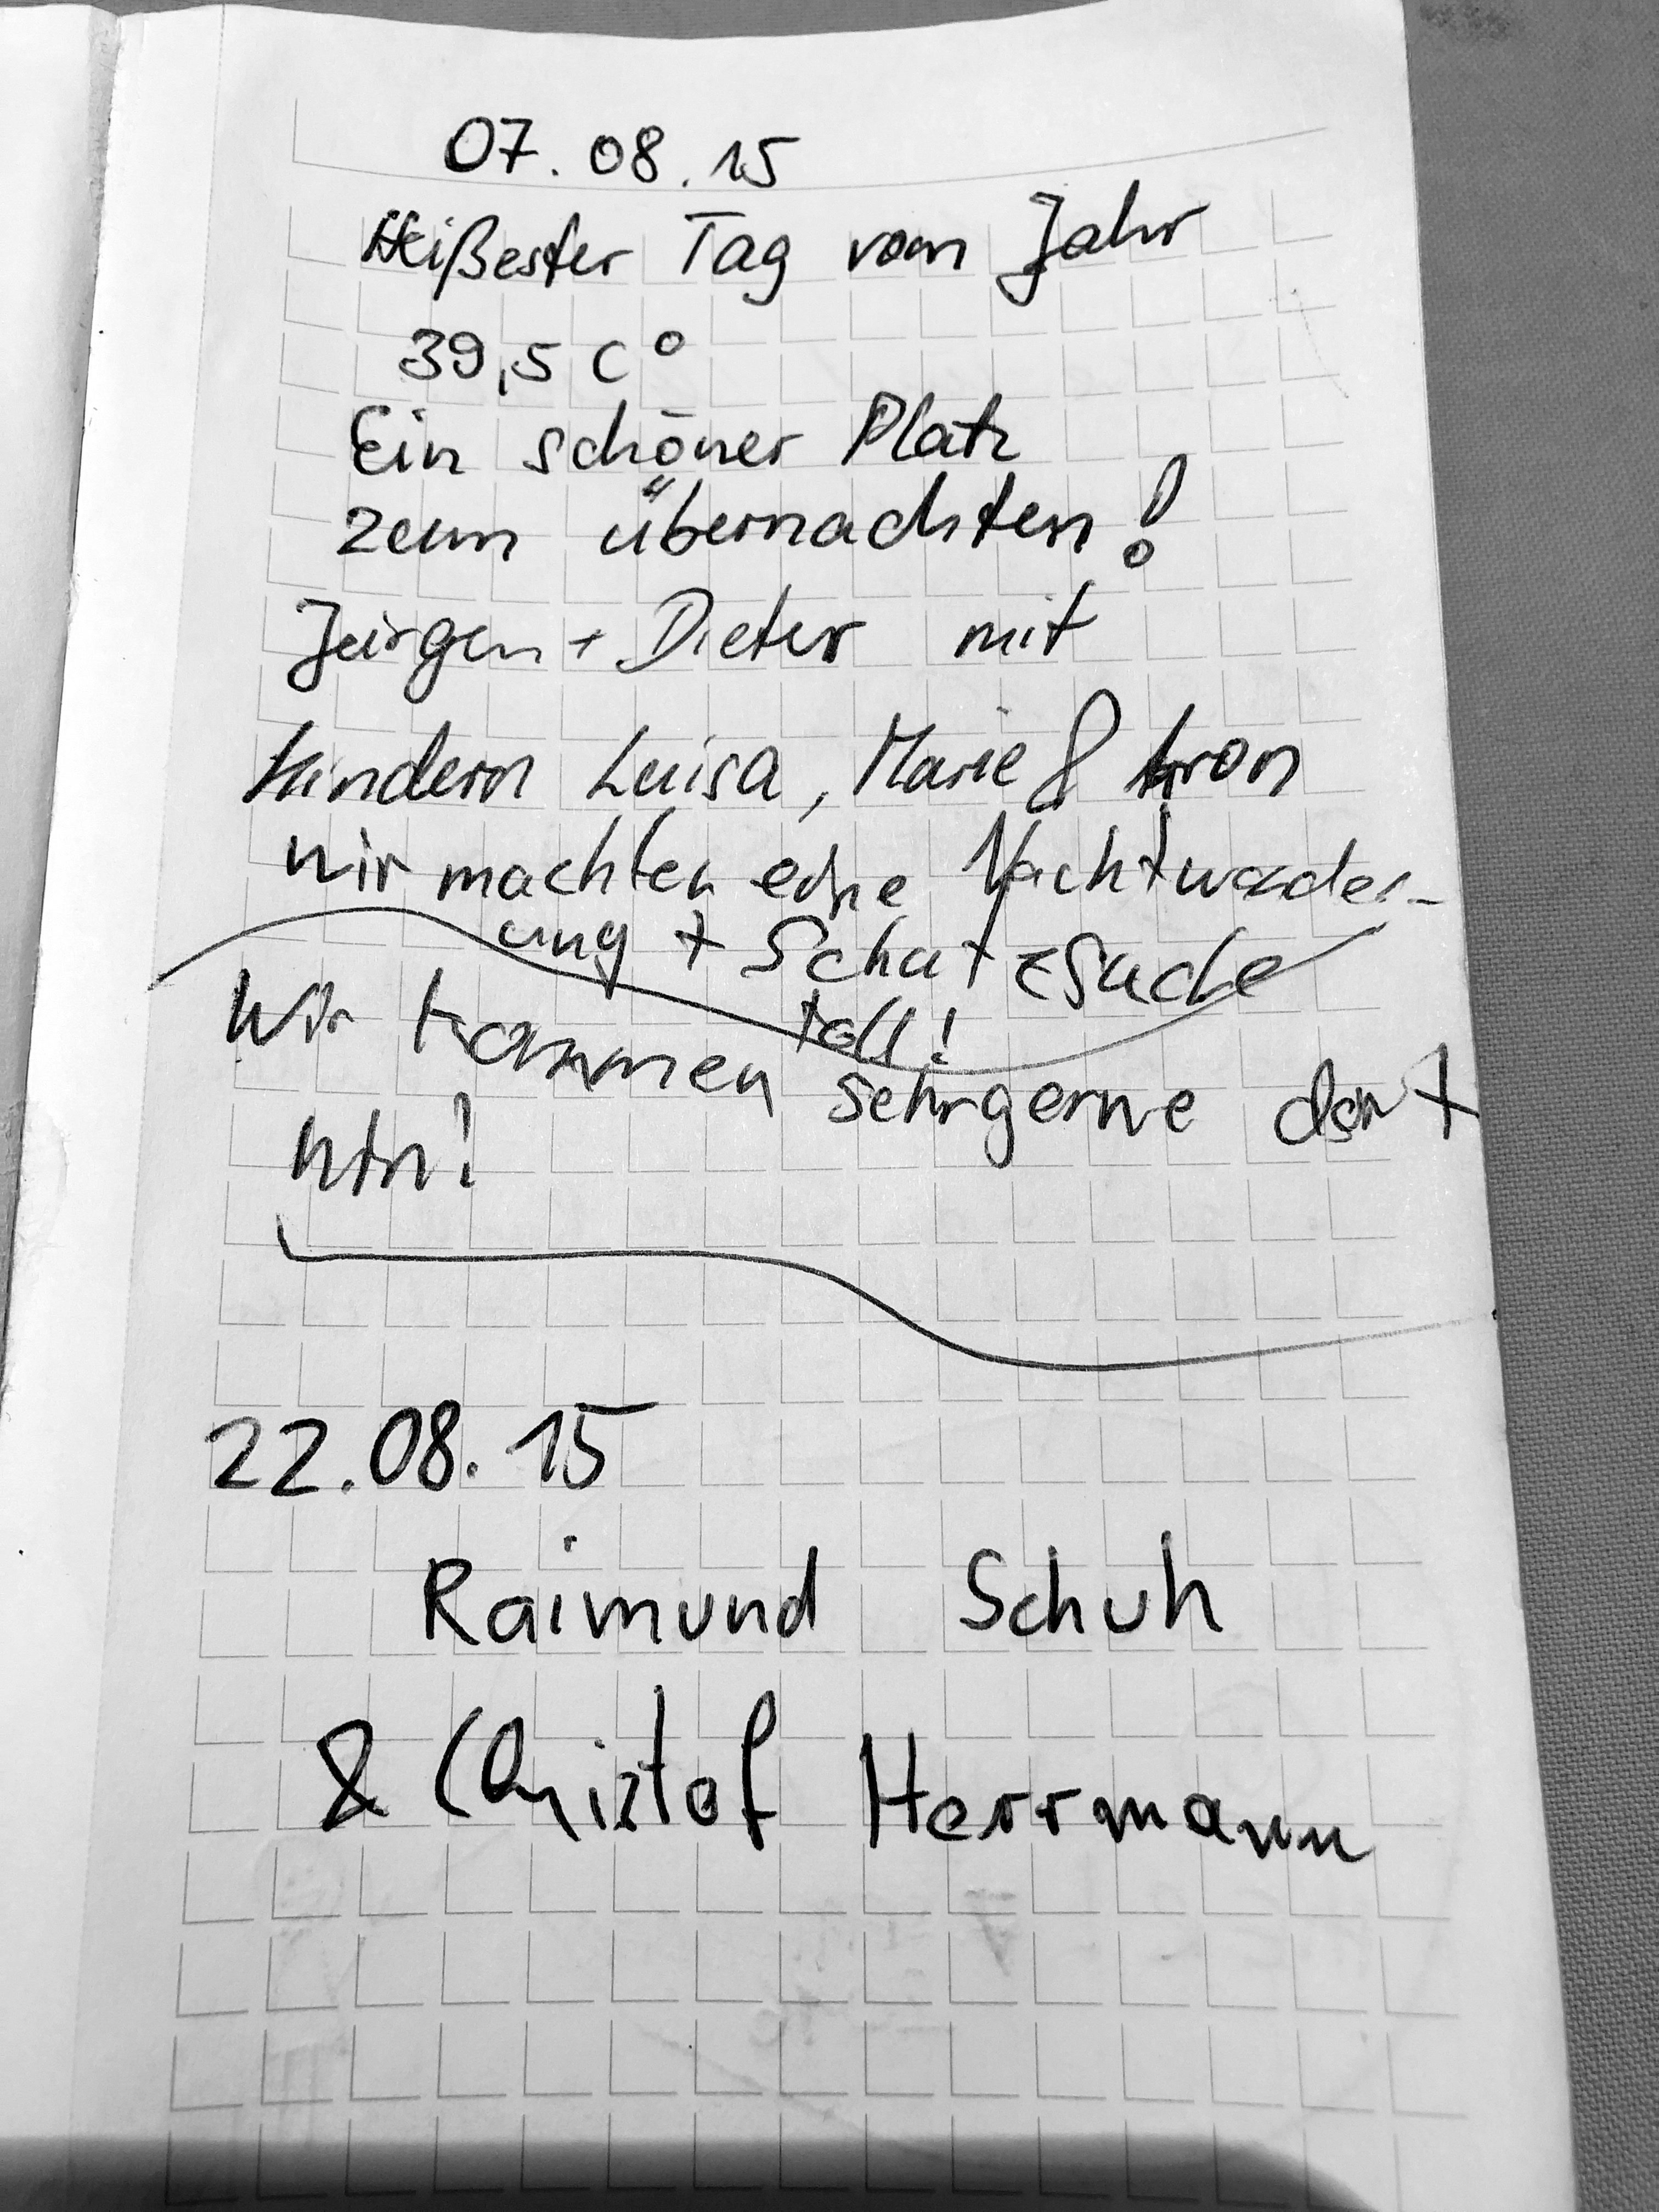 07.08.15
Heißester Tag vom Jahr
39,5 C°
Ein schöner Platz
zum übernachten!
Jürgen + Dieter mit
Kindern Luisa, Marie &
wir machten eine Nachtwander-
ung + Schatzsuche
toll!
Wir kommen sehr gerne dort
hin!
22.08.15
Raimund Schuh
& Christof Herrmann